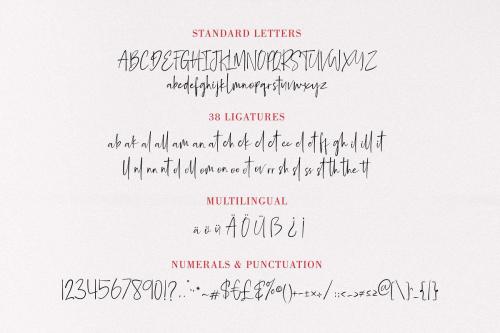 STANDARD LETTERS
ABCDEFGHIJKLMNOPQRSTUVWXYZ
abcdefghijklmnopqrstuvwxyz
38 LIGATURES
ab ak al all am an at ch ck cl ct cc el et ff gh il ill it
ll nl nn nt ol oll om on oo ot ov rr sh sl ss st th the tt
MULTILINGUAL
ä ö ü Ä Ö Ü ß ¿ ¡
NUMERALS & PUNCTUATION
1234567890!?